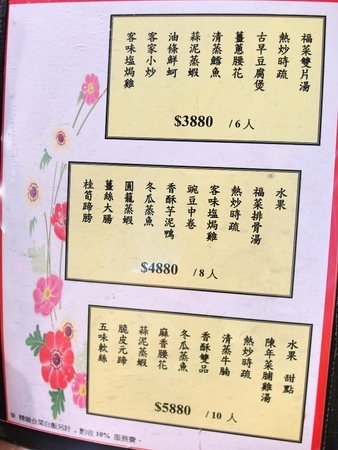 客味塩焗雞
客家小炒
油條鮮蚵
蒜泥蒸蝦
清蒸鱈魚
薑蔥腰花
古早豆腐煲
熱炒時疏
福菜雙片湯
$3880 / 6 人
桂筍蹄膀
薑絲大腸
圓籠蒸蝦
冬瓜蒸魚
香酥芋泥鴨
豌豆中卷
客味塩焗雞
熱炒時疏
福菜排骨湯
水果
$4880 / 8 人
五味軟絲
脆皮元蹄
蒜泥蒸蝦
麻香腰花
冬瓜蒸魚
香酥雙品
清蒸牛腩
熱炒時疏
陳年菜脯雞湯
水果 甜點
$5880 / 10 人
※ 合菜白飯另計，酌收 10% 服務費。